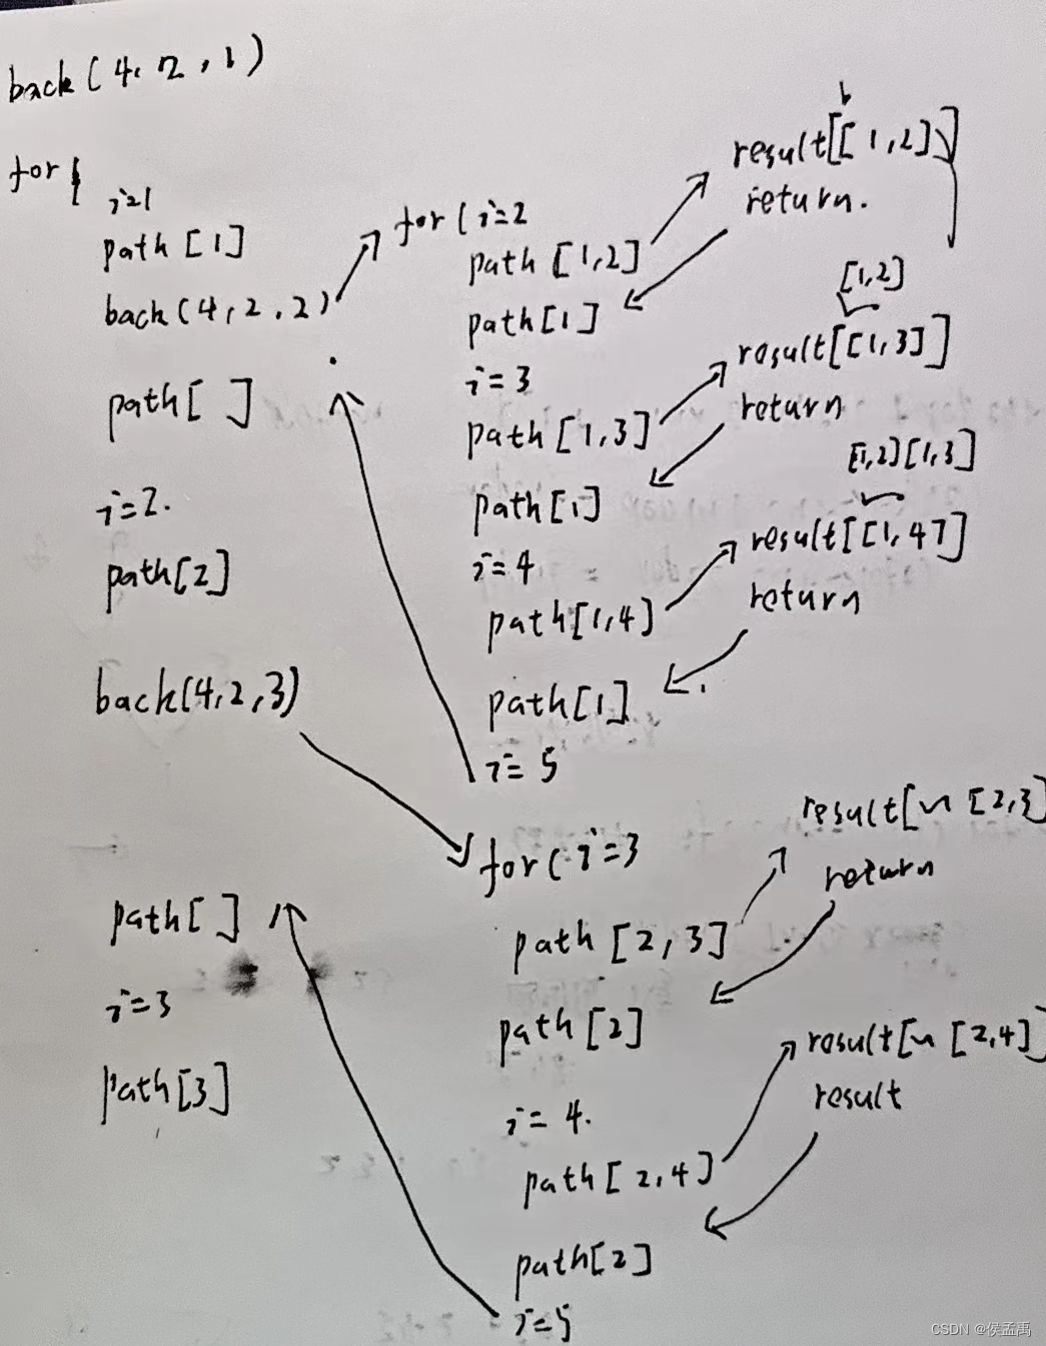 back(4,2,1)
for{
i=1
path [1]
back(4,2,2)
path[ ]
i=2.
path[2]
back(4,2,3)
path[ ]
i=3
path[3]
for(i=2
path [1,2]
path[1]
i=3
path [1,3]
path[1]
i=4
path[1,4]
path[1]
i=5
result[[1,2]]
return.
[1,2]
result[[1,3]]
return
[1,2][1,3]
result[[1,4]]
return
for(i=3
path [2,3]
path [2]
i=4.
path[2,4]
path[2]
i=5
result[ [2,3]
return
result[ [2,4]]
result
CSDN @侯孟禹